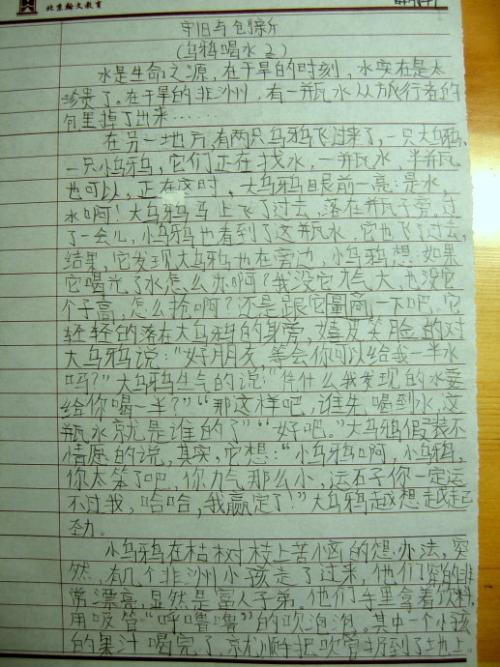 北京翰文教育
守旧与创新
(乌鸦喝水2)
水是生命之源,在干旱的时刻,水实在是太
珍贵了。在干旱的非洲,有一瓶水从旅行者的
包里掉了出来……
在另一地方,有两只乌鸦飞过来了,一只大乌鸦,
一只小乌鸦,它们正在找水,一瓶水,半瓶
也可以,正在这时,大乌鸦眼前一亮:是水,
水啊!大乌鸦马上飞了过去,落在瓶子旁,过
了一会儿,小乌鸦也看到了这瓶水,它也飞了过去,
结果,它发现大乌鸦也在旁边,小乌鸦想:如果
它喝光了水怎么办啊?我没它力气大,也没它
个子高,怎么抢啊?还是跟它商量一下吧,它
轻轻的落在大乌鸦的身旁,嬉皮笑脸的对
大乌鸦说:“好朋友,等会你可以给我一半水
吗?”大乌鸦生气的说:“凭什么我发现的水要
给你喝一半?”“那这样吧,谁先喝到水,这
瓶水就是谁的了”“好吧。”大乌鸦假装不
情愿的说,其实,它想:“小乌鸦啊,小乌鸦,
你太笨了吧,你力气那么小,运石子你一定运
不过我,哈哈,我赢定了!”大乌鸦越想越起
劲。
小乌鸦在枯树枝上苦恼的想办法,突
然,有几个非洲小孩走了过来,他们穿的非
常漂亮,显然是富人子弟。他们手里拿着饮料,
用吸管“呼噜噜”的吹泡泡。其中一个小孩
的果汁喝完了,就顺手把吹管扔到了地上